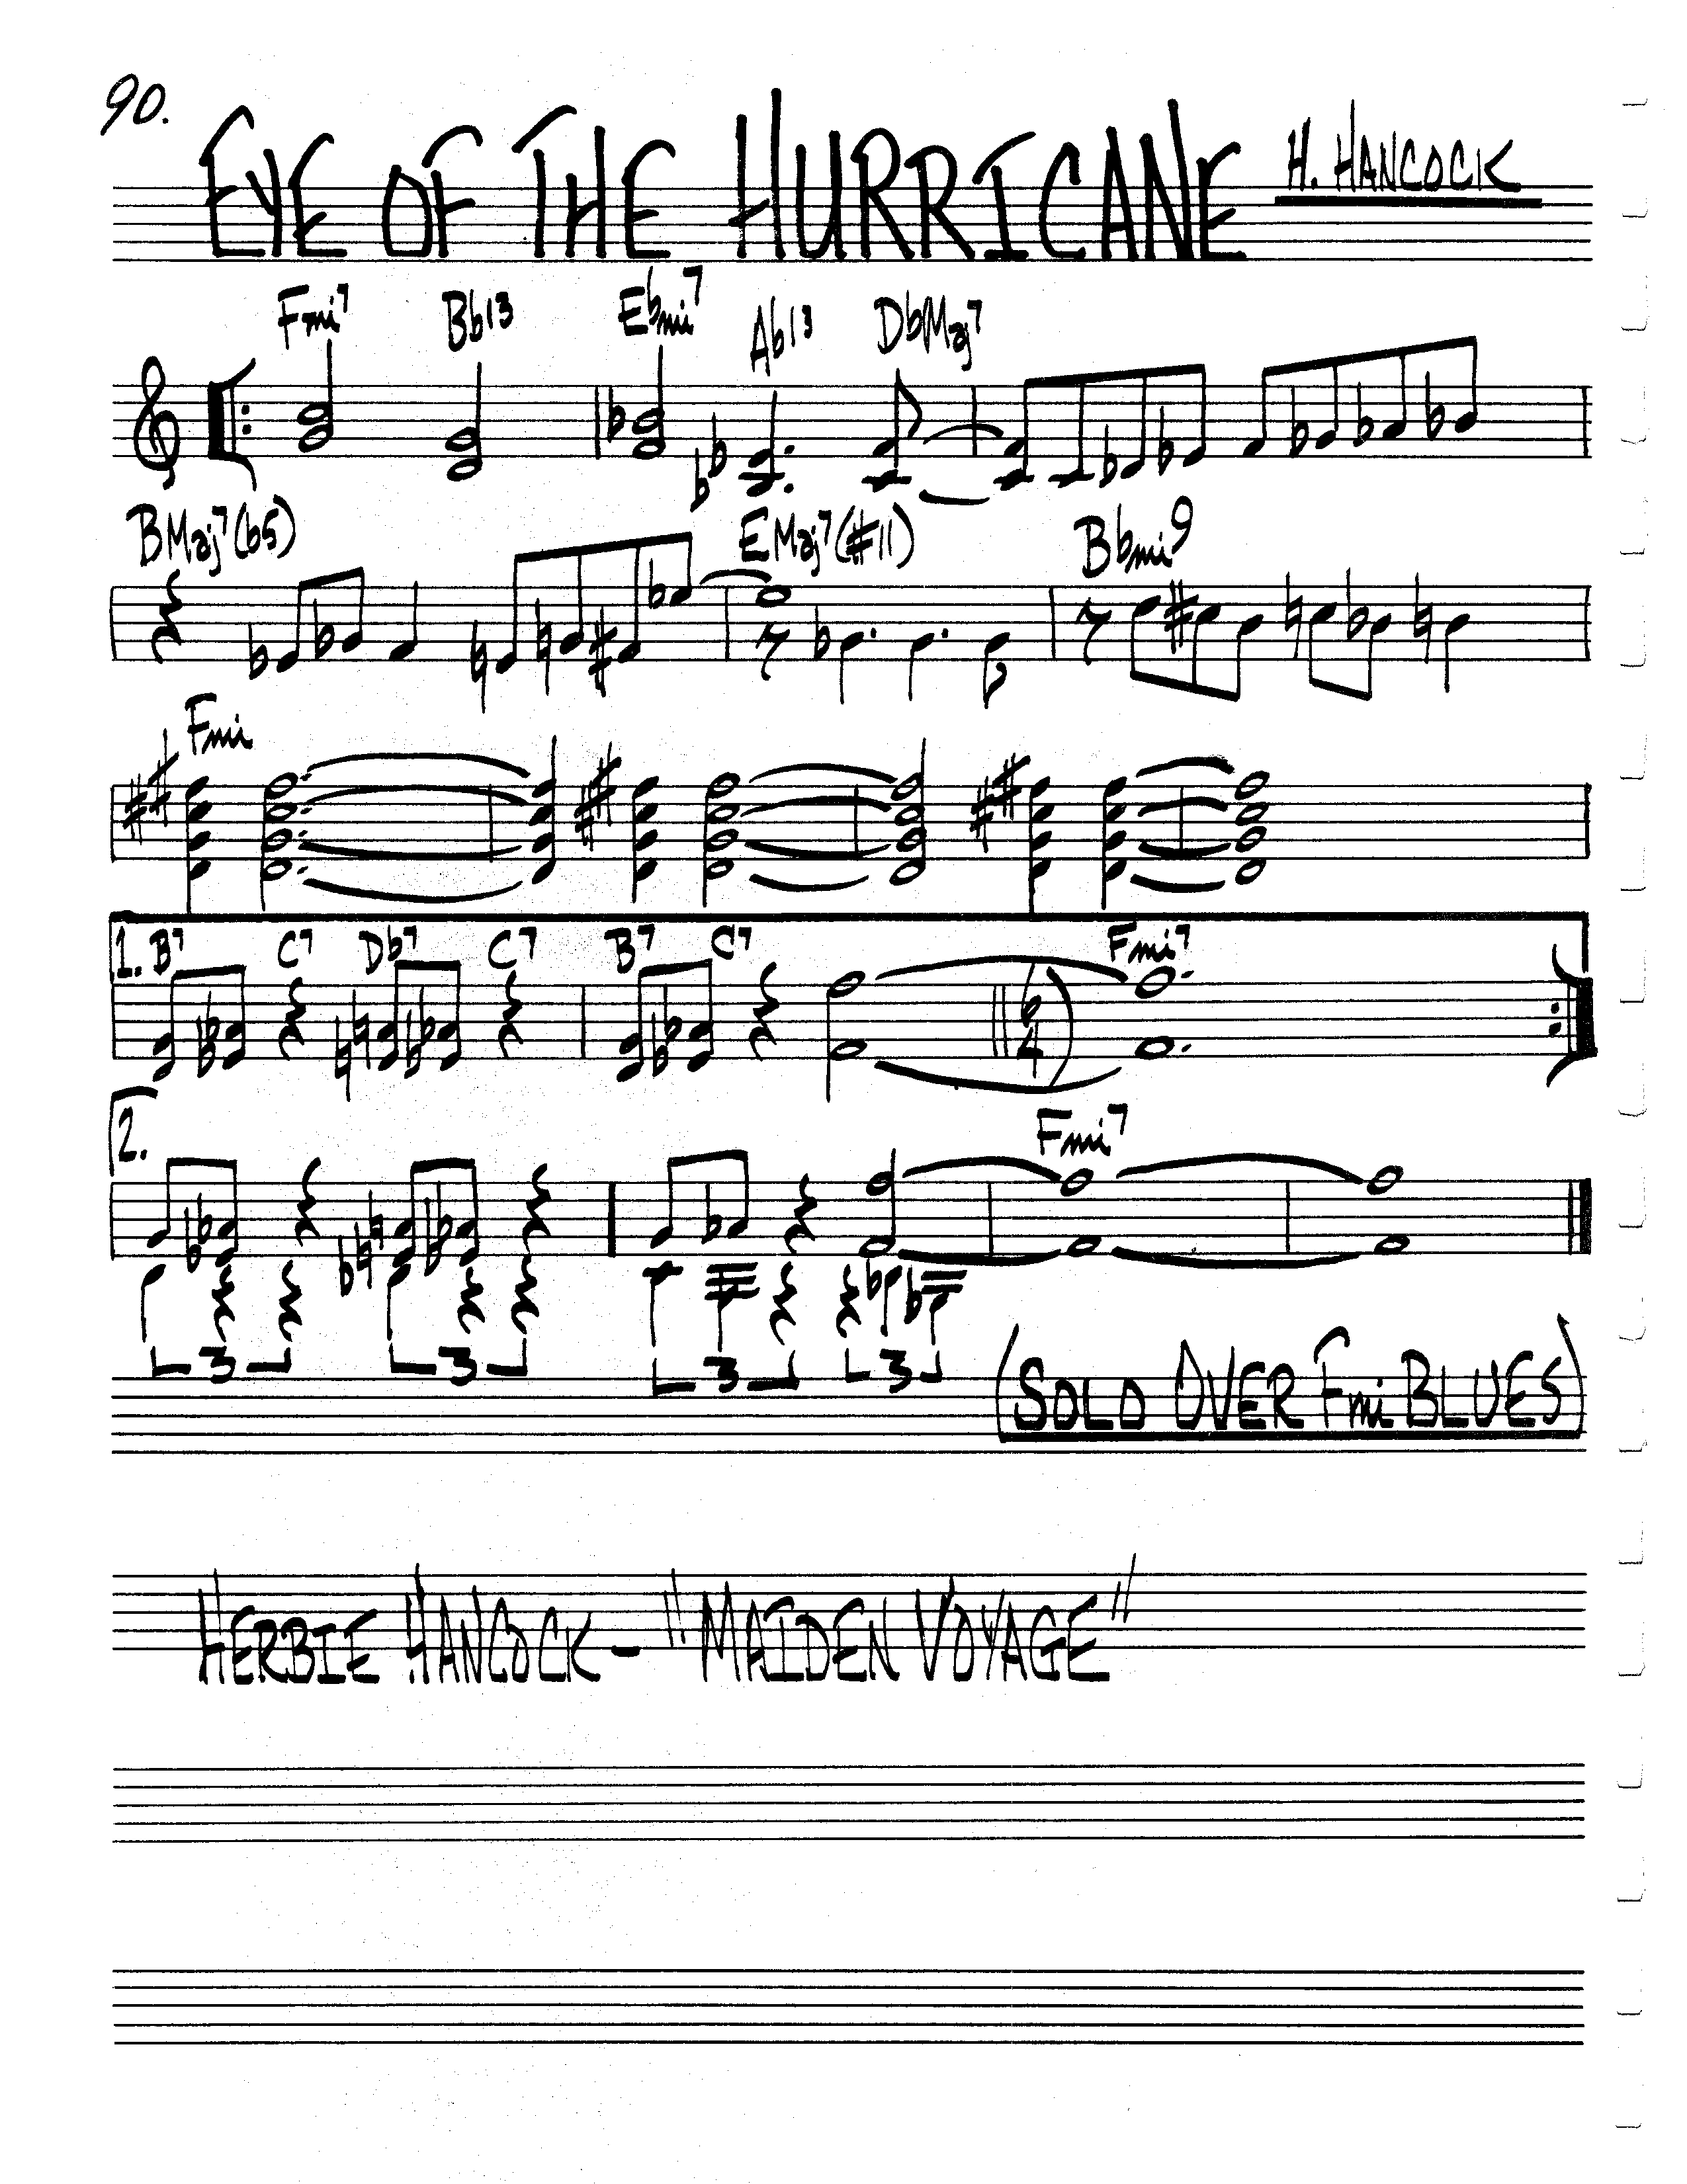 90.
EYE OF THE HURRICANE H. HANCOCK
Fmi7 Bb13 Ebmi7 Ab13 DbMaj7
BMaj7(b5) EMaj7(#11) Bbmi9
Fmi
1. B7 C7 Db7 C7 B7 C7 Fmi7
6
4
2. Fmi7
3 3 3 3
(SOLO OVER Fmi BLUES)
HERBIE HANCOCK - "MAIDEN VOYAGE"